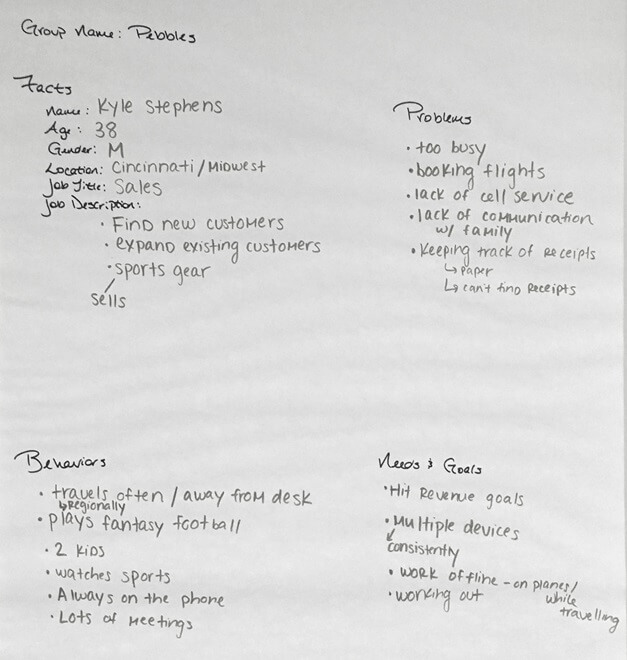 Group Name: Pebbles
Facts
Name: Kyle Stephens
Age: 38
Gender: M
Location: Cincinnati/Midwest
Job Title: Sales
Job Description:
• Find new customers
• expand existing customers
• sports gear
sells
Problems
• too busy
• booking flights
• lack of cell service
• lack of communication
w/ family
• Keeping track of receipts
↳ paper
↳ can't find receipts
Behaviors
• travels often / away from desk
↳ Regionally
• plays fantasy football
• 2 kids
• watches sports
• Always on the phone
• Lots of Meetings
Needs & Goals
• Hit Revenue goals
• Multiple devices
consistently
• work offline - on planes/
while
travelling
• working out